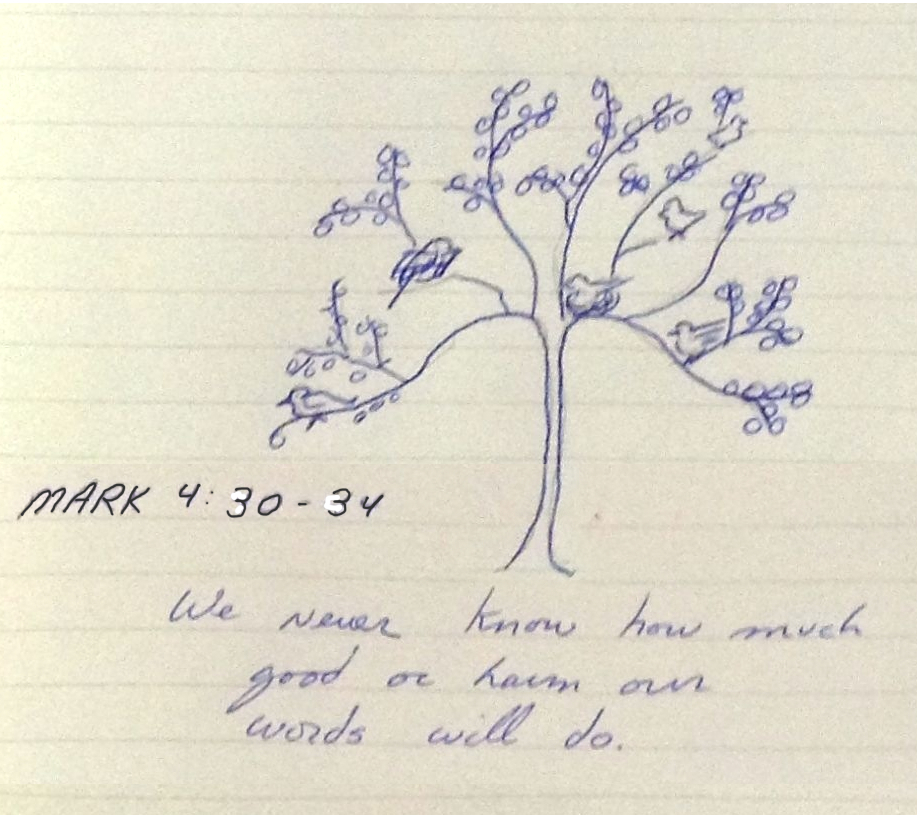 MARK 4:30-34
We never know how much
good or harm our
words will do.